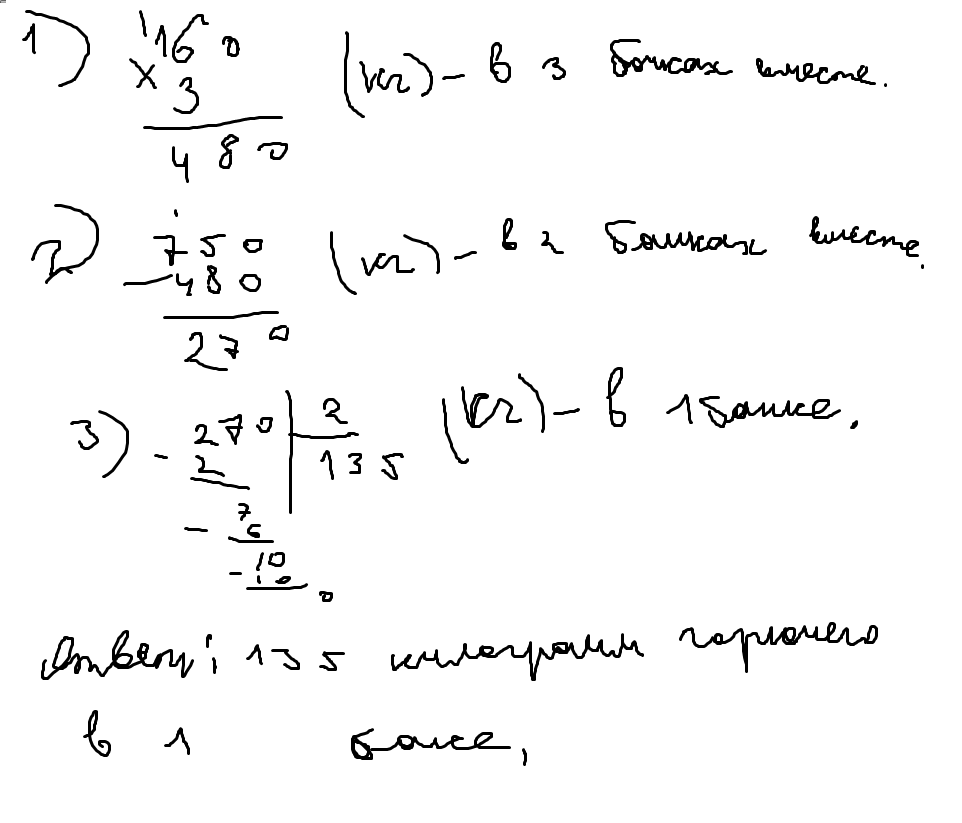 1) 160 (кг) – в 3 бочках вместе.
× 3
480
2) 750 (кг) – в 2 баках вместе.
– 480
270
3) – 270 | 2 (кг) – в 1 баке.
2 | 135
– 7
6
– 10
10
0
Ответ: 135 килограмм горючего
в 1 баке,